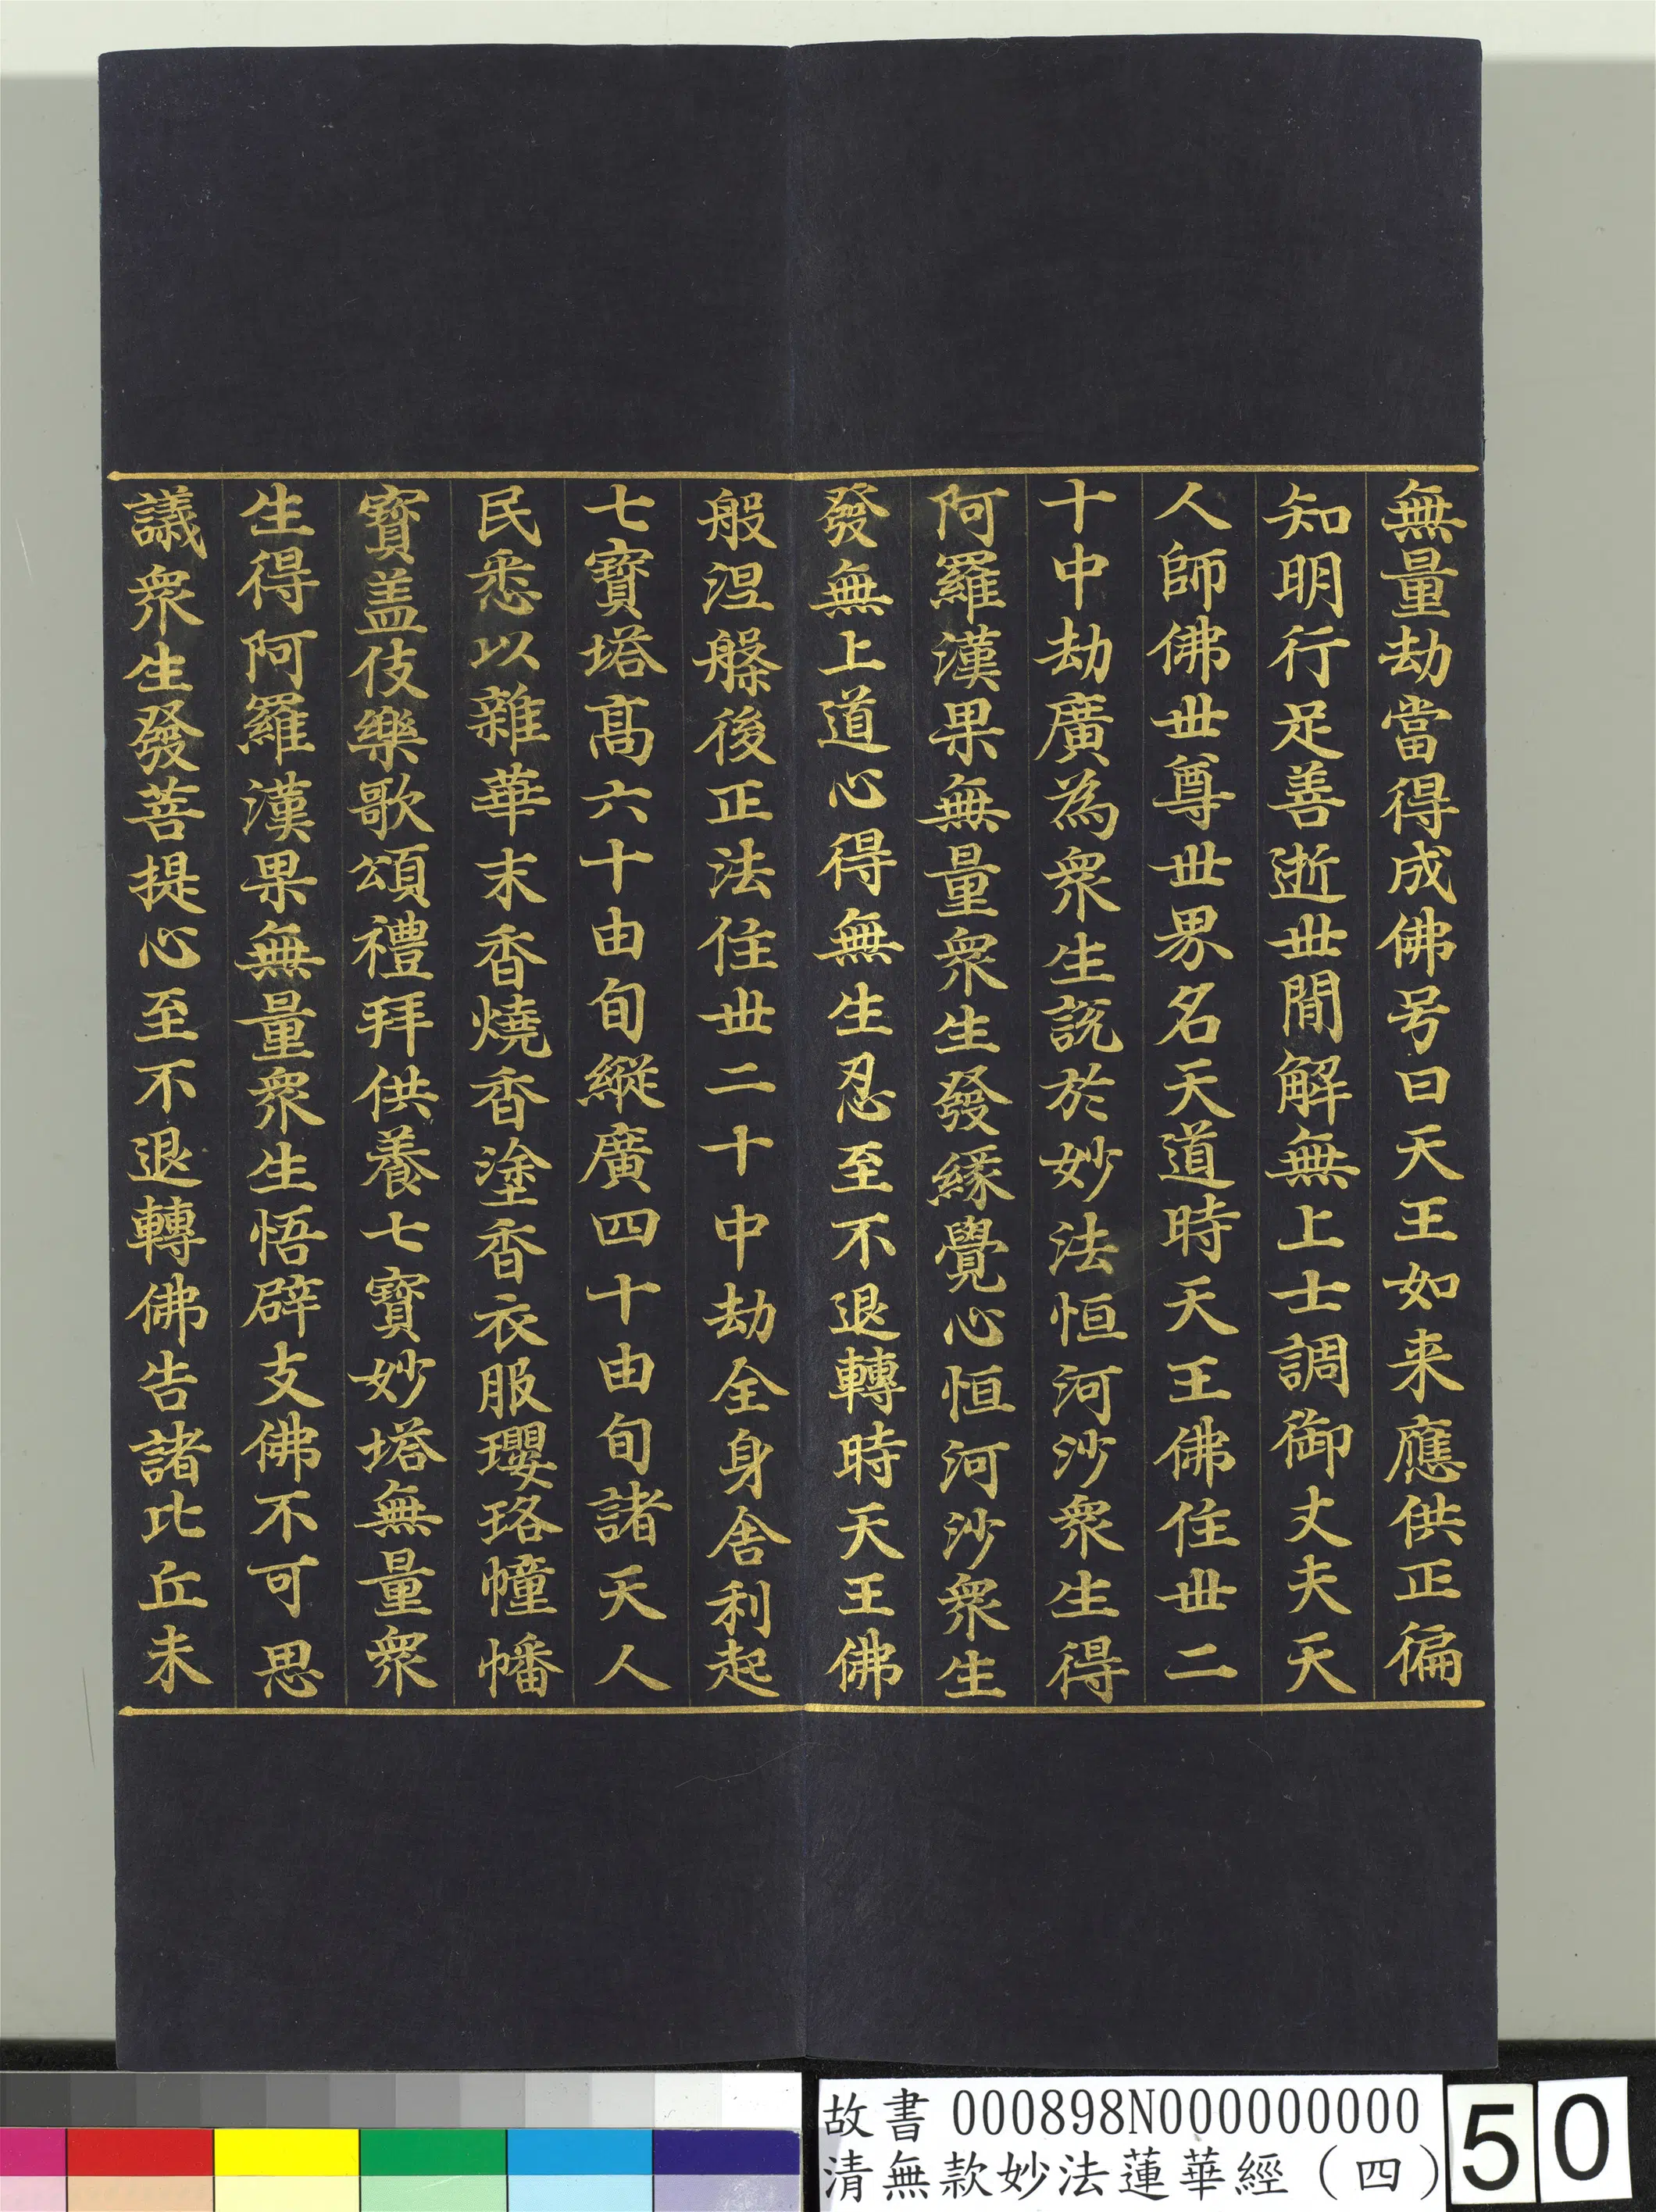 無量劫當得成佛号曰天王如来應供正徧
知明行足善逝世間解無上士調御丈夫天
人師佛世尊世界名天道時天王佛住世二
十中劫廣為衆生說於妙法恒河沙衆生得
阿羅漢果無量衆生發緣覺心恒河沙衆生
發無上道心得無生忍至不退轉時天王佛
般涅槃後正法住世二十中劫全身舍利起
七寶塔髙六十由旬縱廣四十由旬諸天人
民悉以雜華末香燒香塗香衣服瓔珞幢幡
寶盖伎樂歌頌禮拜供養七寶妙塔無量衆
生得阿羅漢果無量衆生悟辟支佛不可思
議衆生發菩提心至不退轉佛告諸比丘未
故書 000898N000000000
清無款妙法蓮華經（四）
50